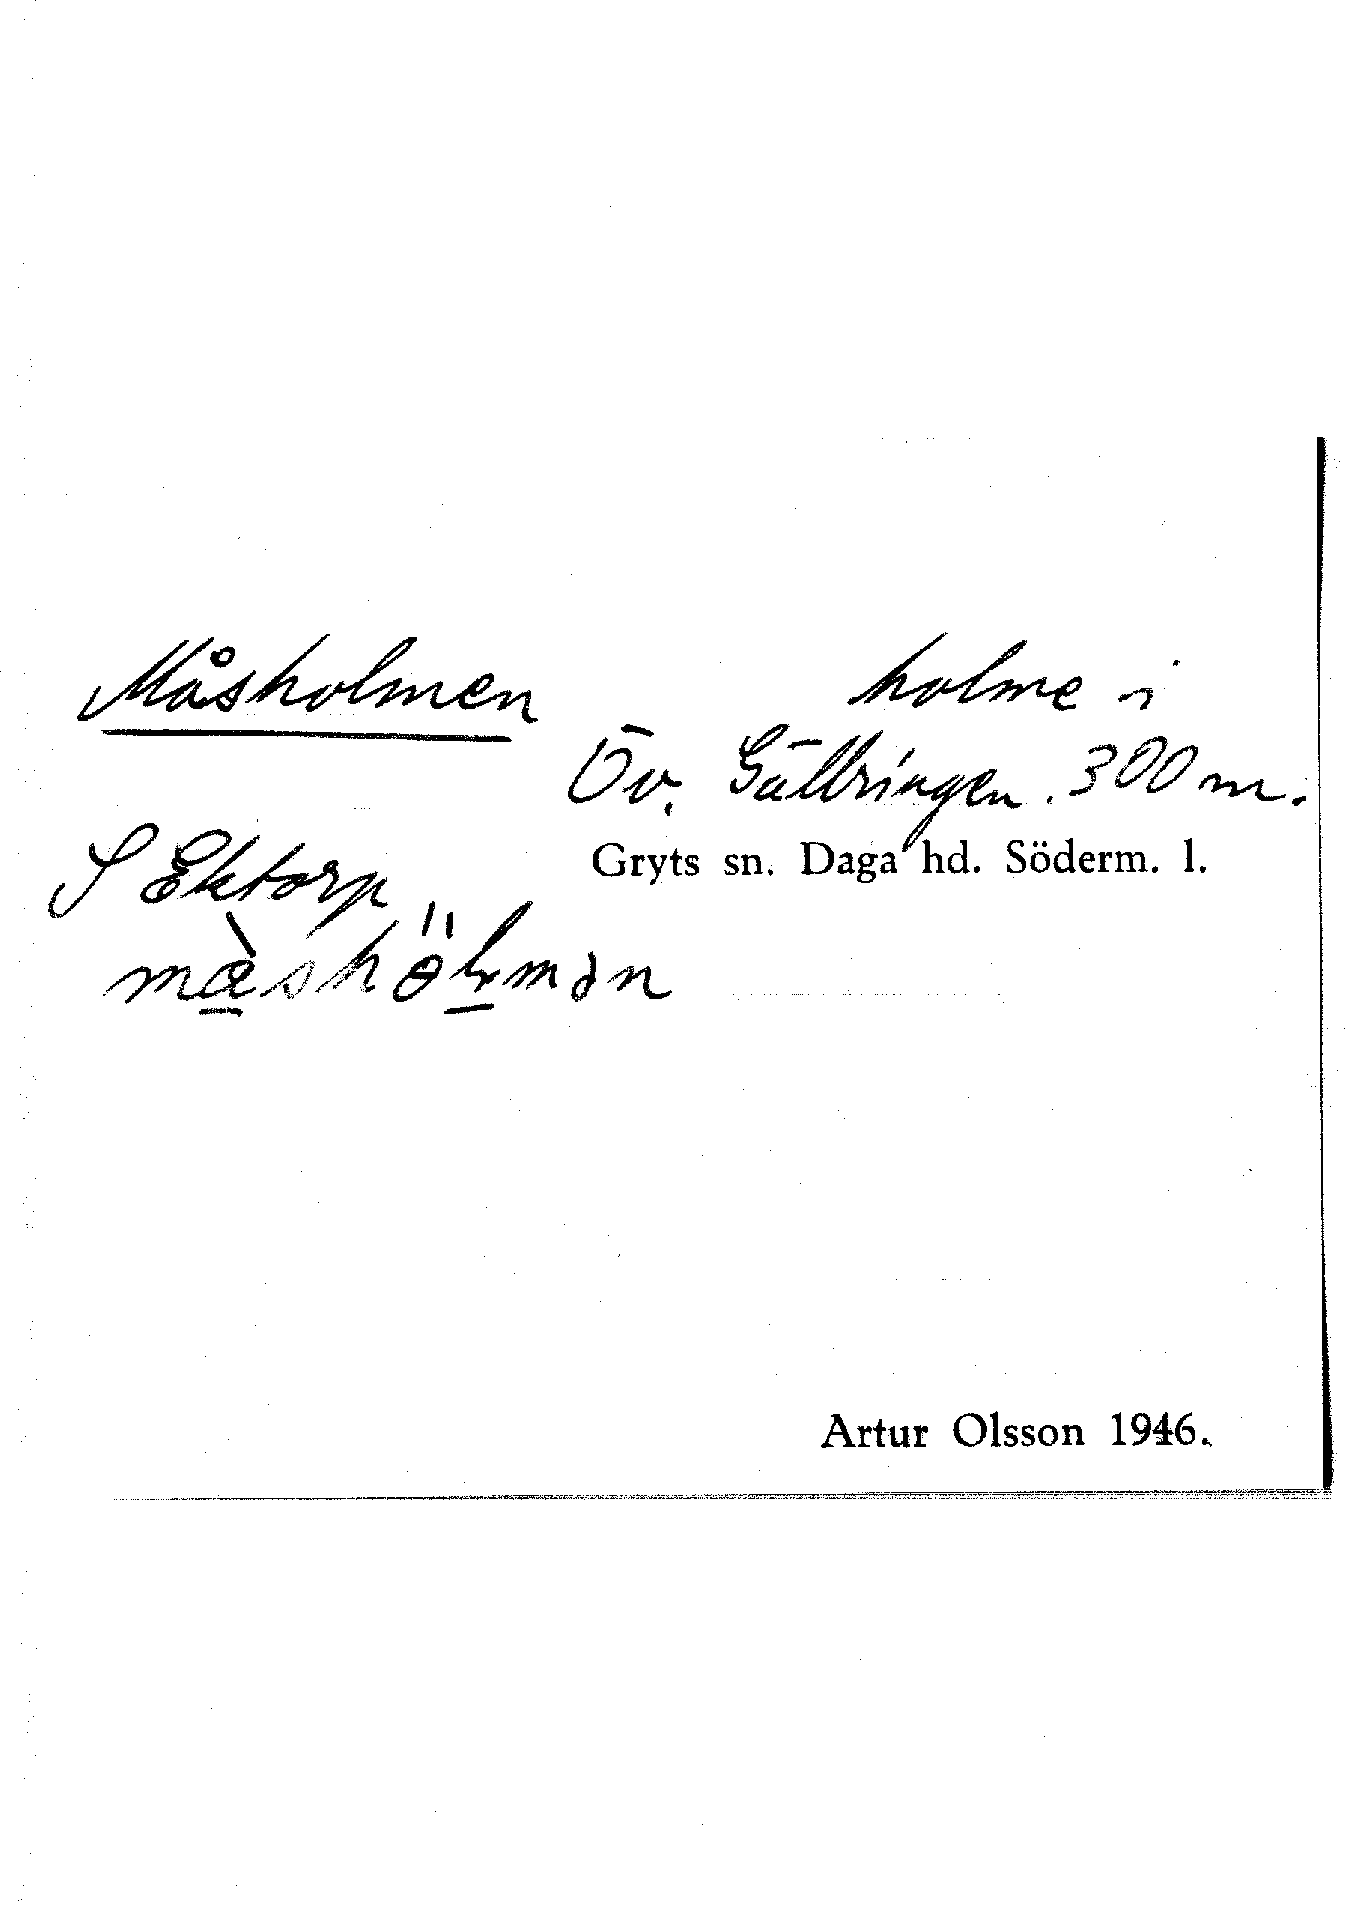 Måsholmen
holme i
Öv. Gällringen. 300 m.
S Ektorp
Gryts sn. Daga hd. Söderm. l.
Artur Olsson 1946.